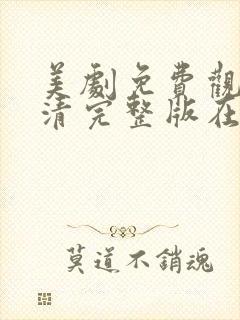 美劇免費觀
清完整版在
莫道不銷魂